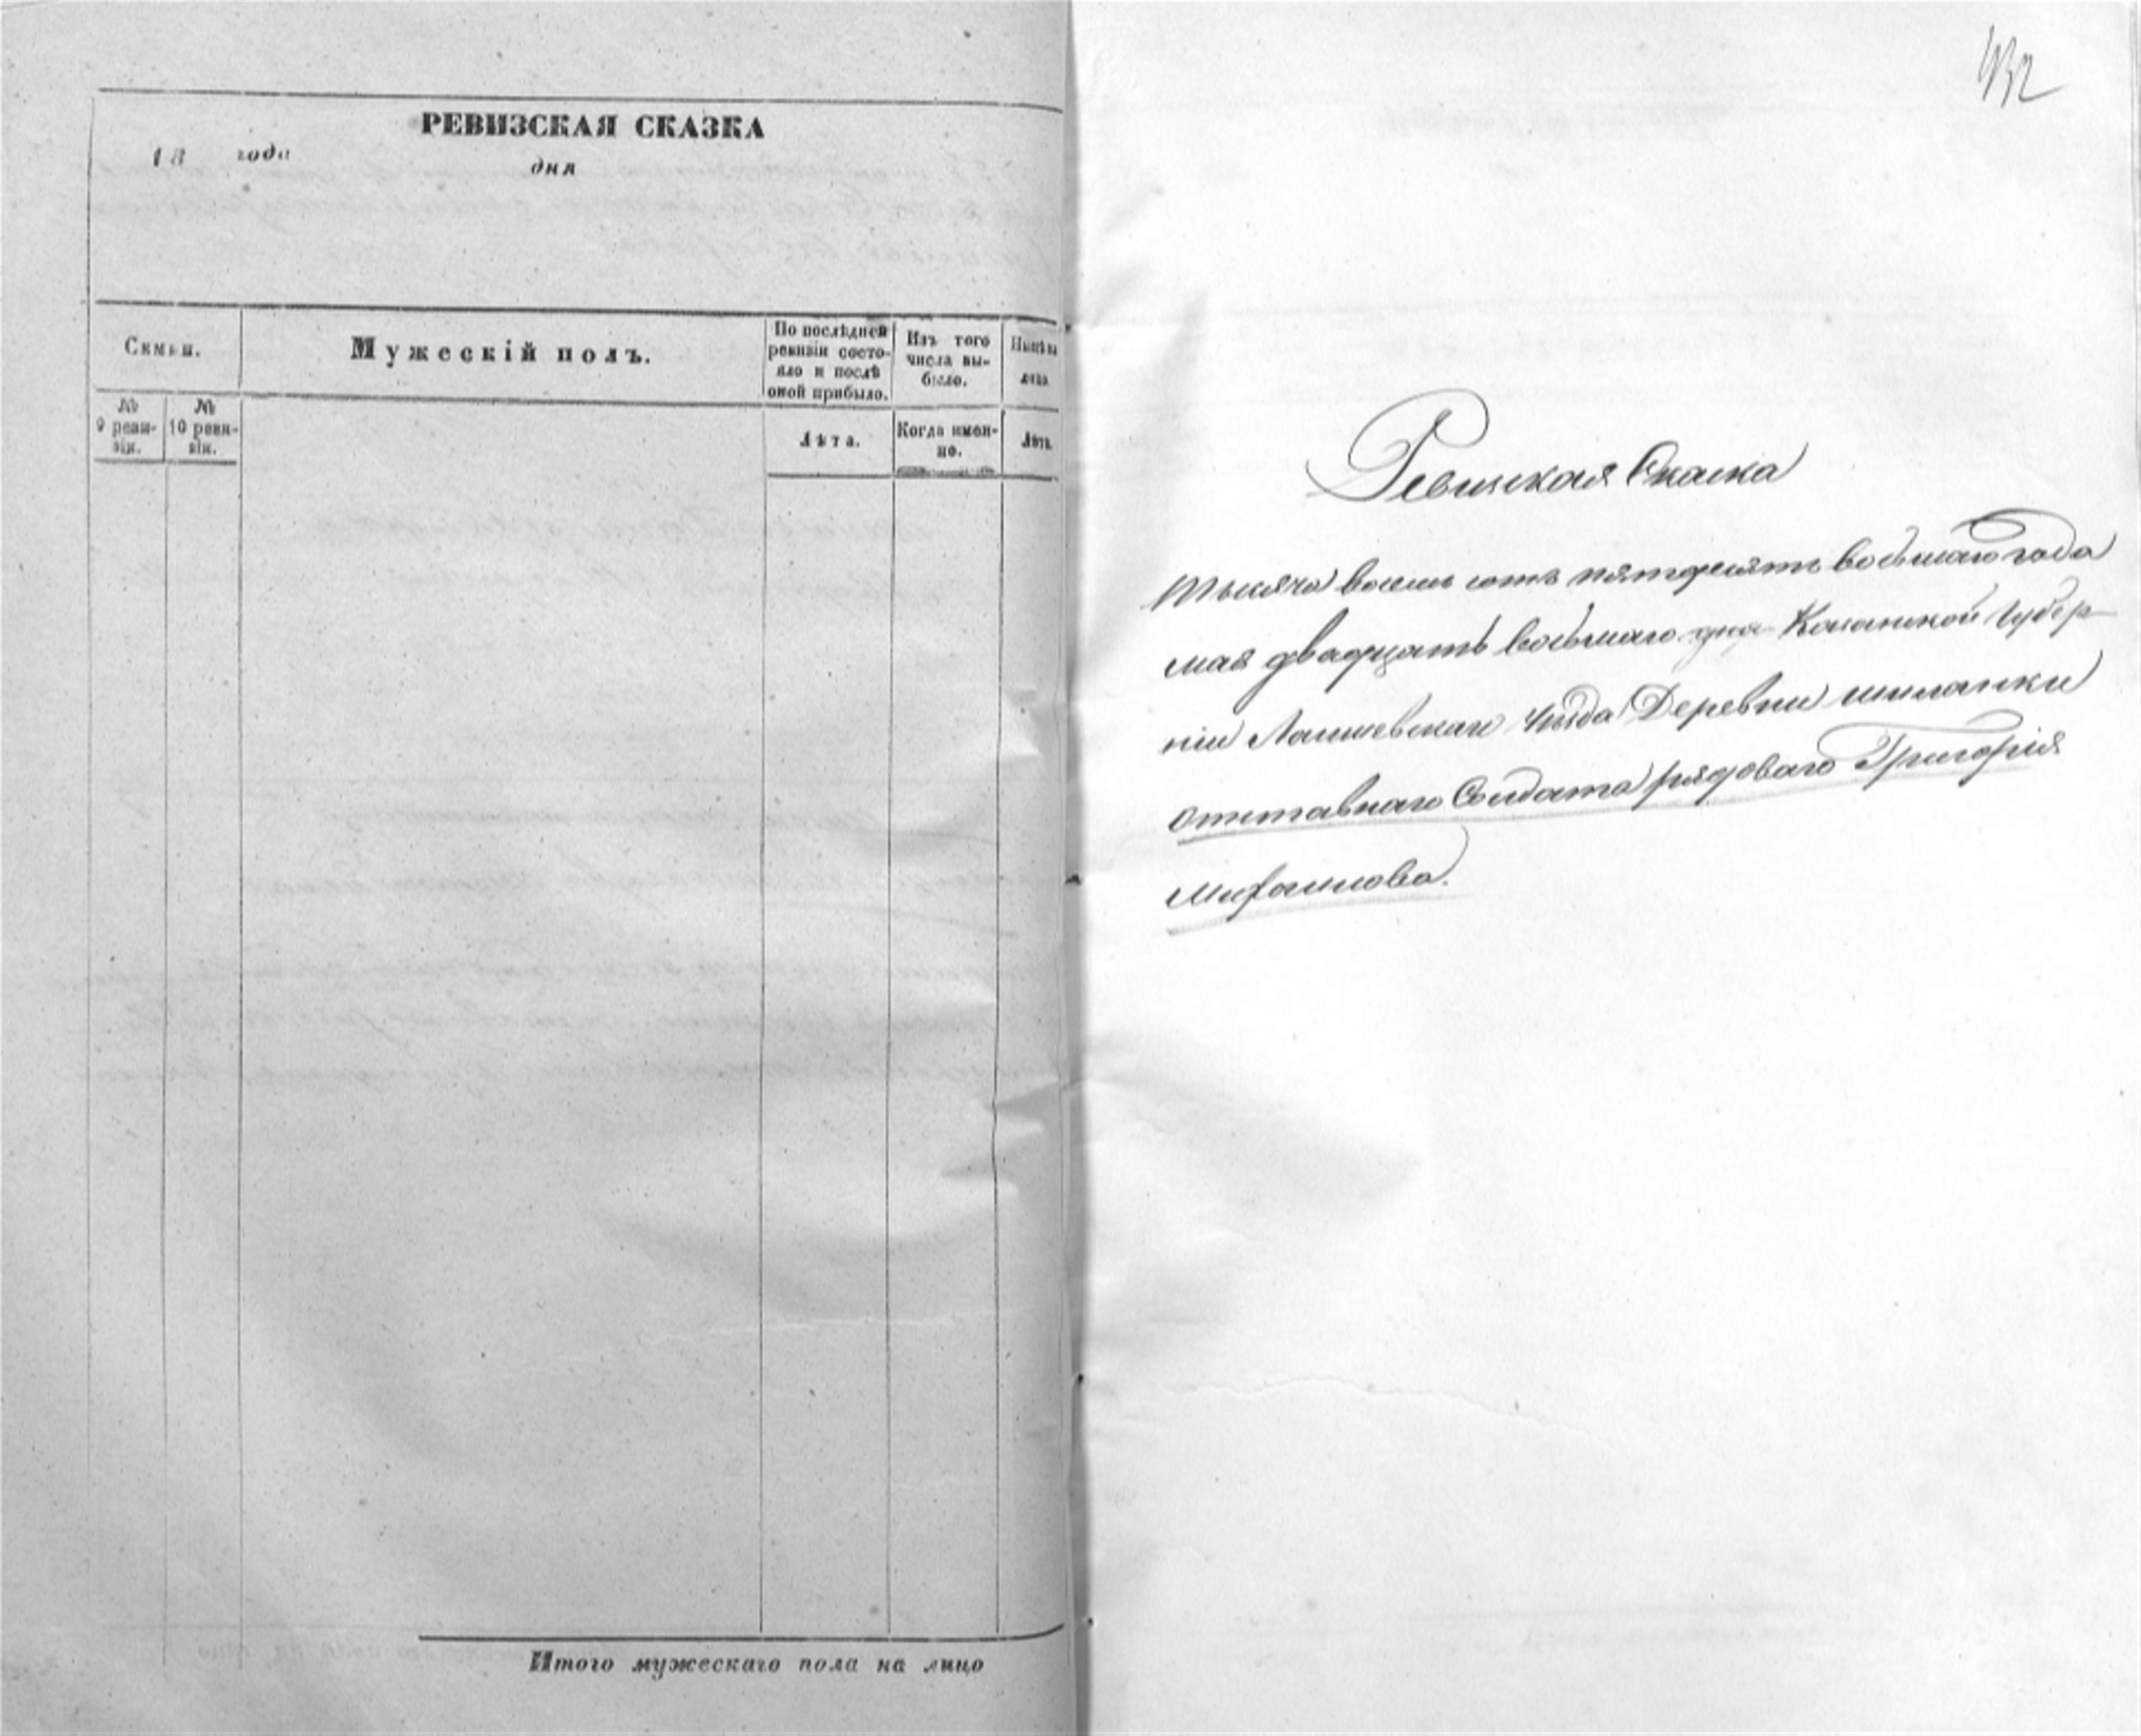 РЕВИЗСКАЯ СКАЗКА
18 года
дня
Семьи.
Мужескій полъ.
По послѣдней ревизіи состояло и послѣ оной прибыло.
Изъ того числа выбыло.
Нынѣ на лицо.
№ 9 ревизіи.
№ 10 ревизіи.
Лѣта.
Когда именно.
Лѣта.
Итого мужескаго пола на лицо
432
Ревизкая Сказка
Тысяча восемь сотъ пятдесятъ восьмаго года
мая двадцать восьмаго дня Казанской Губер-
ніи Лаишевскаго Уѣзда Деревни шиланки
отставнаго Солдата рядоваго Григорія
Михайлова.